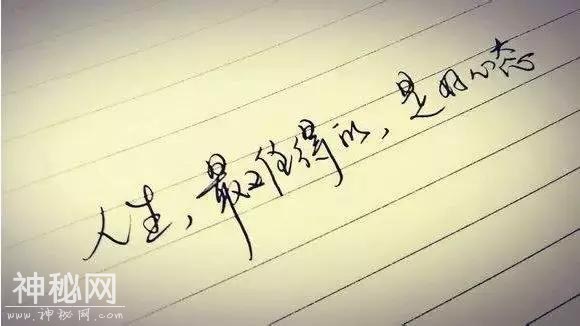 人生，最难得的，是好心态
神秘网
www.神秘网.com